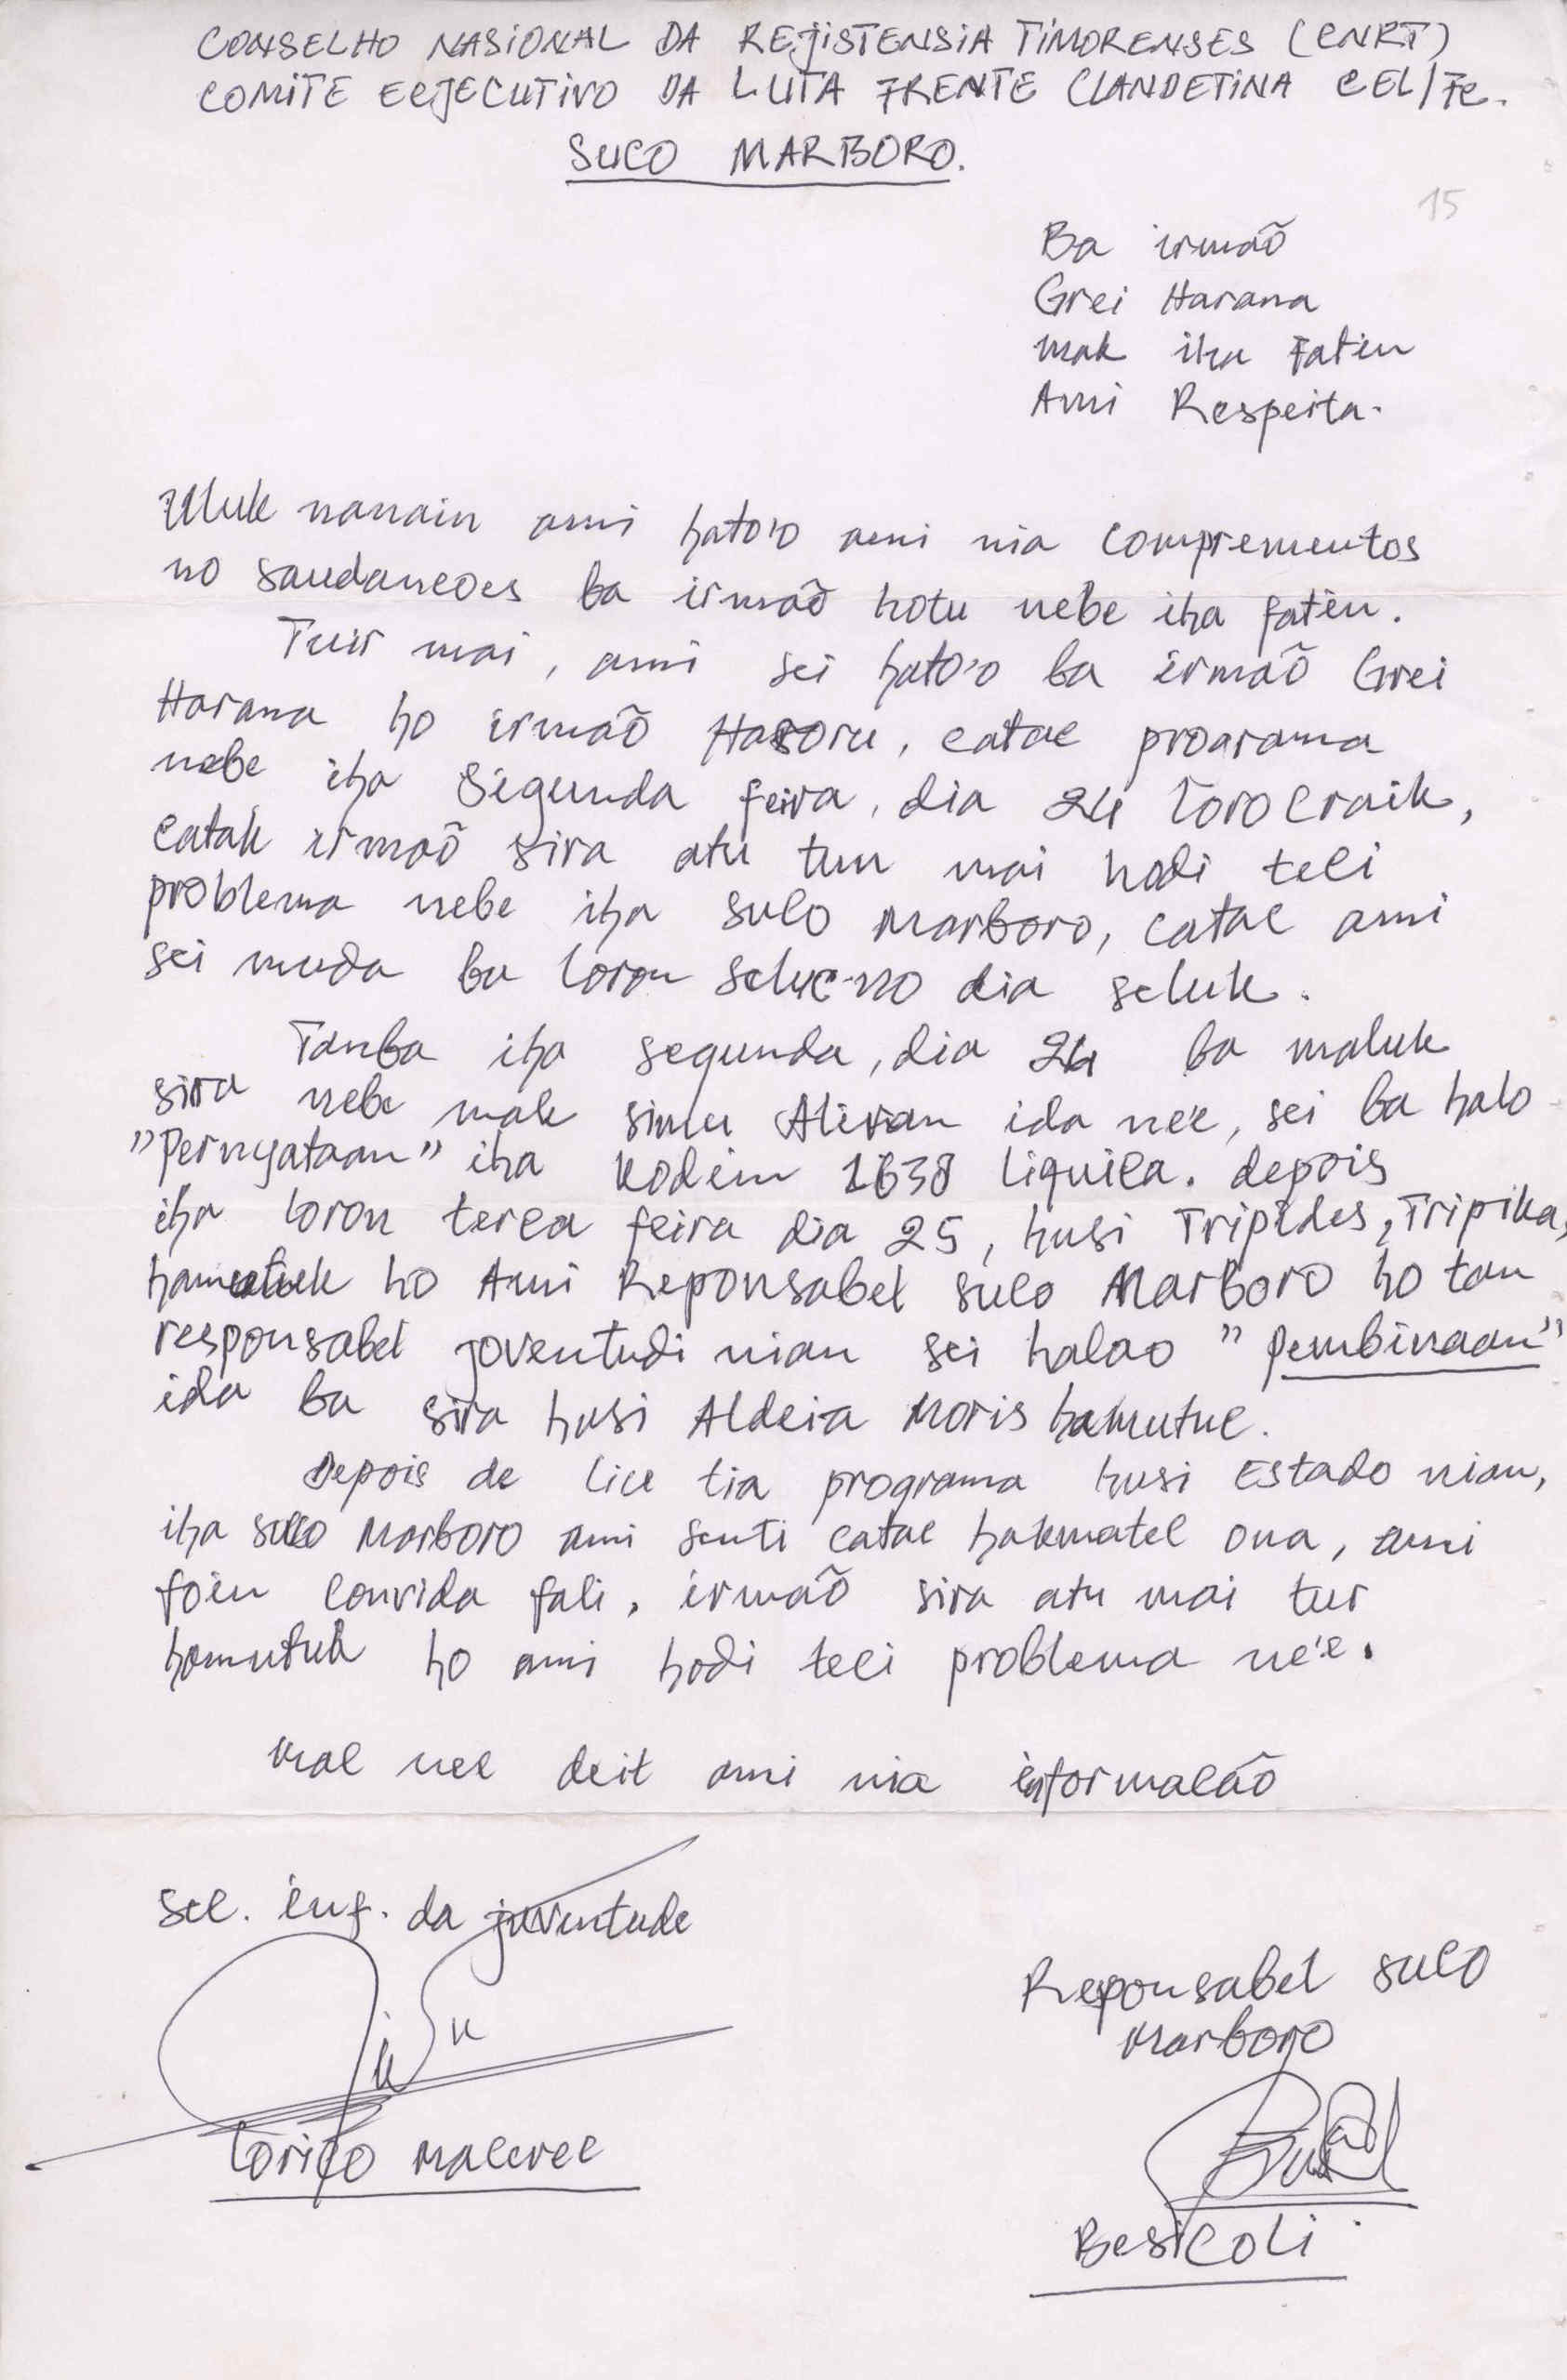 CONSELHO NASIONAL DA REJISTENSIA TIMORENSES (CNRT)
COMITE EEJECUTIVO DA LUTA FRENTE CLANDETINA CEL/FC.
SUCO MARBORO.
15
Ba irmaõ
Grei Harana
mak iha Fatin
Ami Respeita.
Uluk nanain ami hato'o ami nia comprementos
no saudaneoes ba irmaõ hotu nebe iha fatin.
Tuir mai, ami sei hato'o ba irmaõ Grei
Harana ho irmaõ Hasoru, catac proarama
nebe iha Segunda feira, dia 24 loro craik,
catak irmaõ sira atu tun mai hodi teci
problema nebe iha suco Marboro, catac ami
sei muda ba loron seluc no dia seluk.
Tanba iha segunda, dia 24 ba maluk
sira nebe mak simu Aliran ida ne'e, sei ba halo
"Pernyataan" iha Kodim 1638 liquica. depois
iha loron terca feira dia 25, husi Tripides, Tripika,
hamutuk ho Ami Reponsabel suco Marboro ho tan
responsabel joventudi nian sei halao "pembinaan"
ida ba sira husi Aldeia Moris hamutuc.
Depois de liu tia programa husi Estado nian,
iha suco Marboro ami senti catac hakmatec ona, ami
foin convida fali, irmaõ sira atu mai tur
hamutuk ho ami hodi teci problema ne'e.
Mac nee deit ami nia informacão
Sec. inf. da juventude
Reponsabel suco
Marboro
Loriço Malcree
Besicoli